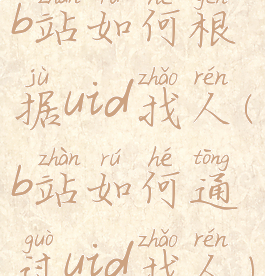 zhàn rú hé gēn
b站如何根
jù zhǎo rén
据uid找人(
zhàn rú hé tōng
b站如何通
guò zhǎo rén
过uid找人)